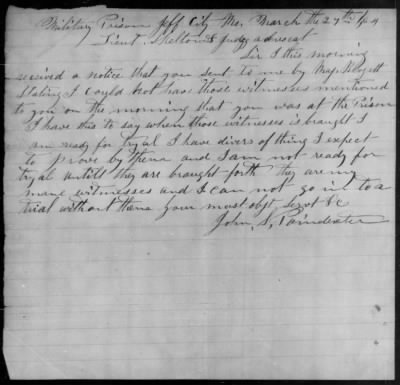 Military Prison Jeff City Mo. March the 27th 64
Lieut Shelton & Judg advocat
Sir I this morning
received a notice that you sent to me by Maj
Stating I could not have those witnesses mentioned
to you on the morning that you was at the Prison
I have this to say when those witnesses is braught I
am ready for tryal I have divers of thing I expect
to prove by them and I am not ready for
tryal untill they are braught forth they are my
mane witnesses and I can not go in to a
trial without them your most obt Servt &c
John S, Poindexter